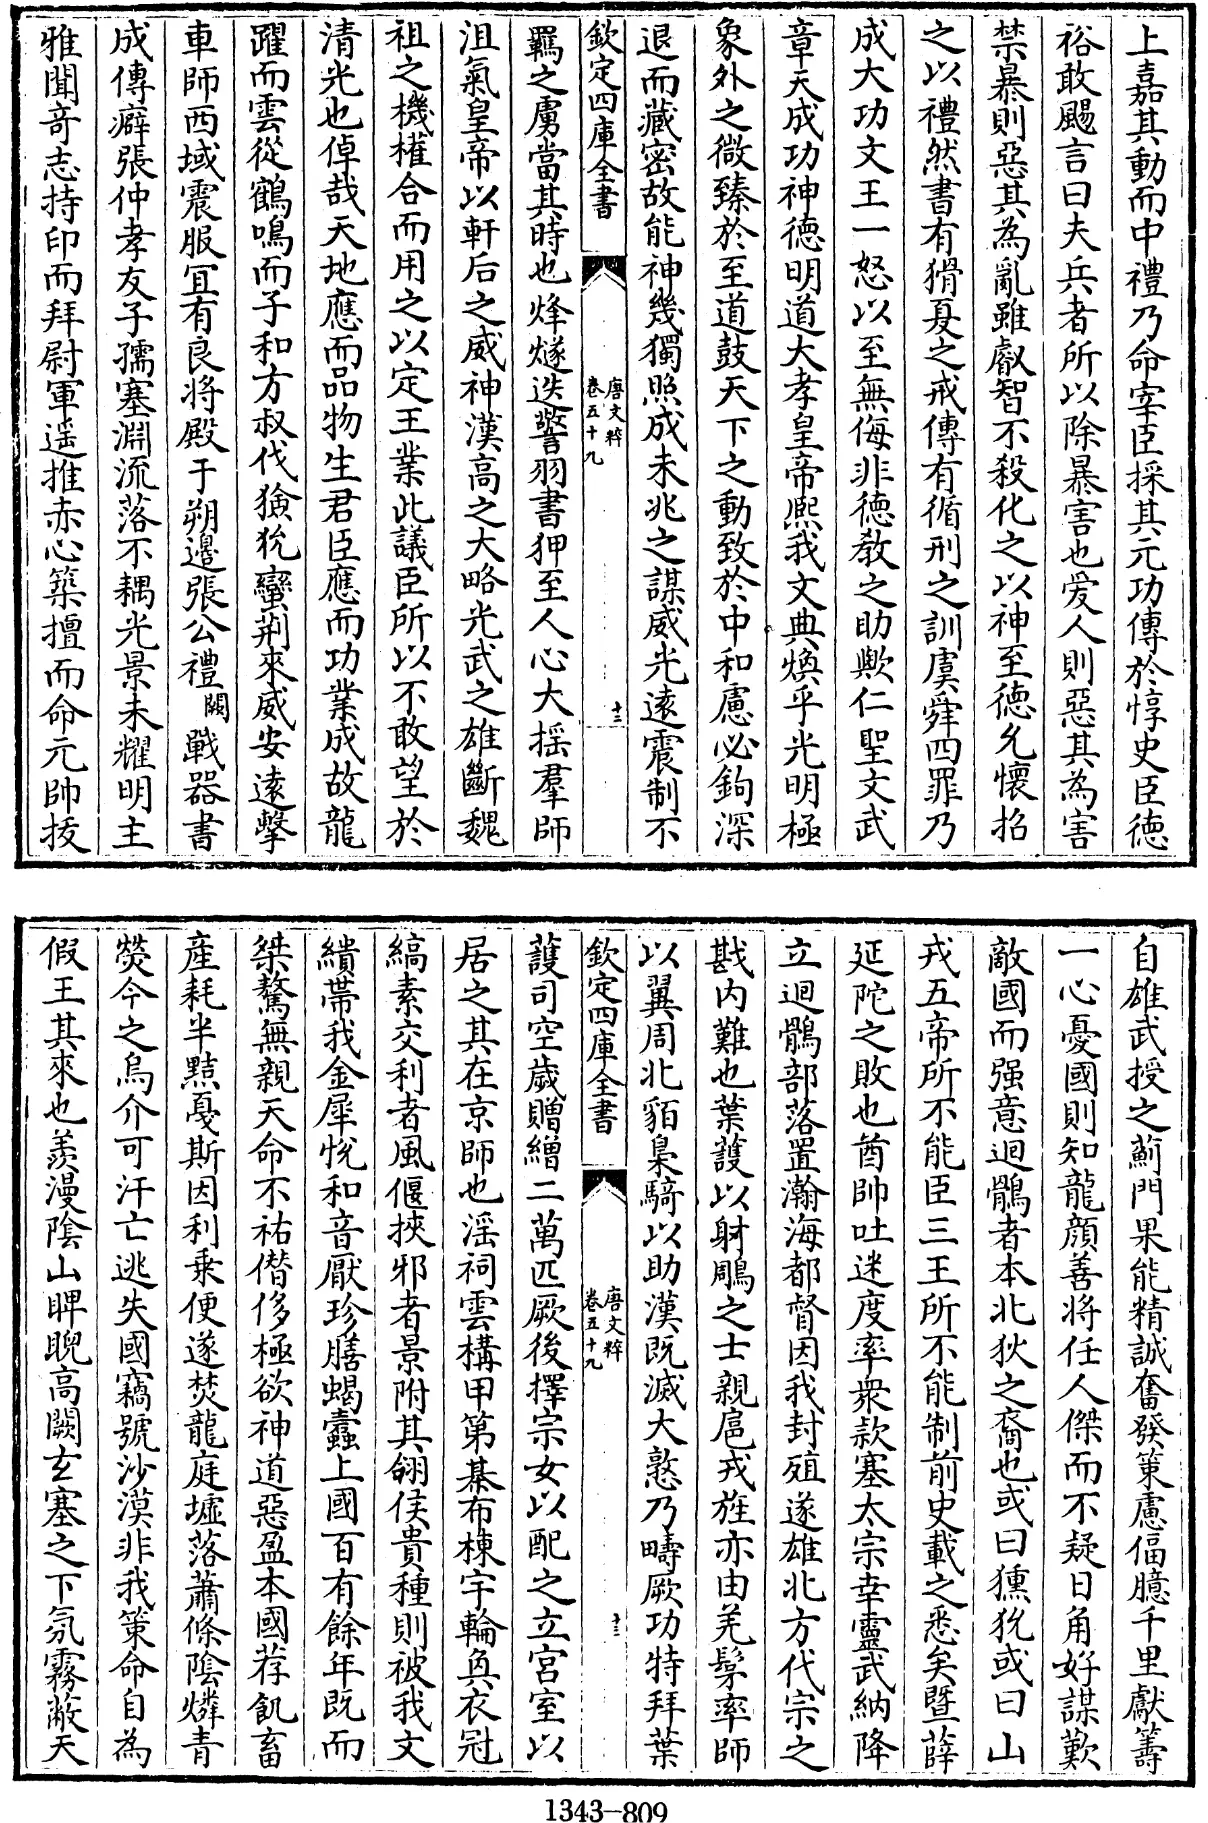 上嘉其動而中禮乃命宰臣採其元功傳於惇史臣德
裕敢颺言曰夫兵者所以除暴害也爱人則惡其為害
禁暴則惡其為亂雖叡智不殺化之以神至德允懷招
之以禮然書有猾夏之戒傳有循刑之訓虞舜四罪乃
成大功文王一怒以至無侮非德教之助歟仁聖文武
章天成功神德明道大孝皇帝熙我文典煥乎光明極
象外之微臻於至道鼓天下之動致於中和慮必鉤深
退而藏密故能神幾獨照成未兆之謀威光遠震制不
欽定四庫全書
唐文粹
卷五十九
十二
羈之虜當其時也烽燧迭警羽書狎至人心大摇羣師
沮氣皇帝以軒后之威神漢高之大略光武之雄斷魏
祖之機權合而用之以定王業此議臣所以不敢望於
清光也倬哉天地應而品物生君臣應而功業成故龍
躍而雲從鶴鳴而子和方叔伐玁狁蠻荆來威安遠擊
車師西域震服宜有良將殿于朔邊張公禮闕戰器書
成傳癖張仲孝友子孺塞淵流落不耦光景未耀明主
雅聞奇志持印而拜尉軍遥推赤心築壇而命元帥拔
自雄武授之薊門果能精誠奮發策慮偪臆千里獻籌
一心憂國則知龍顔善將任人傑而不疑日角好謀歎
敵國而强意迴鶻者本北狄之裔也或曰獯狁或曰山
戎五帝所不能臣三王所不能制前史載之悉矣暨薛
延陀之敗也酋帥吐迷度率衆款塞太宗幸靈武納降
立迴鶻部落置瀚海都督因我封殖遂雄北方代宗之
戡内難也葉護以射鵰之士親扈戎旌亦由羌髳率師
以翼周北貊梟騎以助漢既滅大憝乃疇厥功特拜葉
欽定四庫全書
唐文粹
卷五十九
十三
護司空歲贈繒二萬匹厥後擇宗女以配之立宮室以
居之其在京師也淫祠雲構甲第棊布棟宇輪奐衣冠
縞素交利者風偃挾邪者景附其翎侯貴種則被我文
繢帶我金犀恱和音厭珍膳蝎蠹上國百有餘年既而
桀驁無親天命不祐僭侈極欲神道惡盈本國荐飢畜
產耗半黠戞斯因利乗便遂焚龍庭墟落蕭條陰燐青
熒今之烏介可汗亡逃失國竊號沙漠非我策命自為
假王其來也羨漫陰山睥睨高闕玄塞之下氛霧蔽天
1343-809